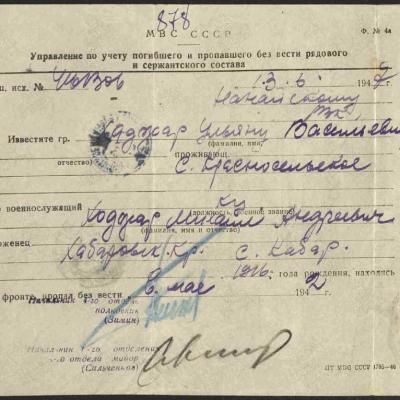 878
МВС СССР
Ф. № 4а
Управление по учету погибшего и пропавшего без вести рядового
и сержантского состава
исх. №
13. 6. 1947 г.
Нанайскому
РВК
Известите гр. Ходжер Ульяну Васильевн
(фамилия, имя,
отчество) проживающ.
с. Красносельское
о военнослужащий
(должность, военное звание)
Ходжер Михаил Андреевич
(фамилия, имя и отчество)
роженец Хабаровск. кр. с. Хабар.
1916 года рождения, находясь
фронте, пропал без вести в мае 1942 г.
Начальник 4-го отдела
полковник
(Зимин)
Начальник -го отделения
-го отдела майор
(Сальченков)
ПТ МВС СССР